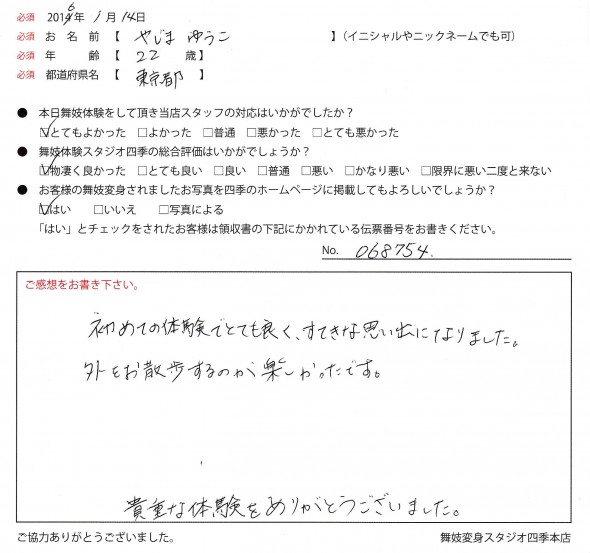 必須 2016年 1月 14日
必須 お名前【 やじま ゆうこ 】(イニシャルやニックネームでも可)
必須 年齢【 22 歳】
必須 都道府県名【 東京都 】
● 本日舞妓体験をして頂き当店スタッフの対応はいかがでしたか?
☑とてもよかった □よかった □普通 □悪かった □とても悪かった
● 舞妓体験スタジオ四季の総合評価はいかがでしょうか?
☑物凄く良かった □とても良い □良い □普通 □悪い □かなり悪い □限界に悪い二度と来ない
● お客様の舞妓変身されましたお写真を四季のホームページに掲載してもよろしいでしょうか?
☑はい □いいえ □写真による
「はい」とチェックをされたお客様は領収書の下記にかかれている伝票番号をお書きください。
No. 068754.
ご感想をお書き下さい。
初めての体験でとても良く、すてきな思い出になりました。
外をお散歩するのが楽しかったです。
貴重な体験をありがとうございました。
ご協力ありがとうございました。 舞妓変身スタジオ四季本店